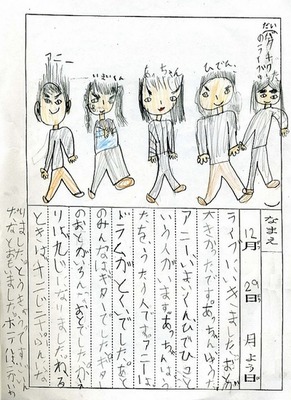 だい
のライブ
アニー
いまいくん
あっちゃん
ひでひこ
なまえ
12月29日月よう日
ライブにいきました。おとが
大きかったです。あっちゃんはうた
アニー、いまいくんひでひこと
いう人がいます。あっちゃんはう
たをうたう人です。アニーは
ドラムがとくいでした。あと
のみんなはギターでした。ギター
のおとがろんろんおとでした。かえ
りは、九じになりました。ねる
ときは、十二じ
りました。とうきょうです。いえ
だなとおもいました。ホテルは